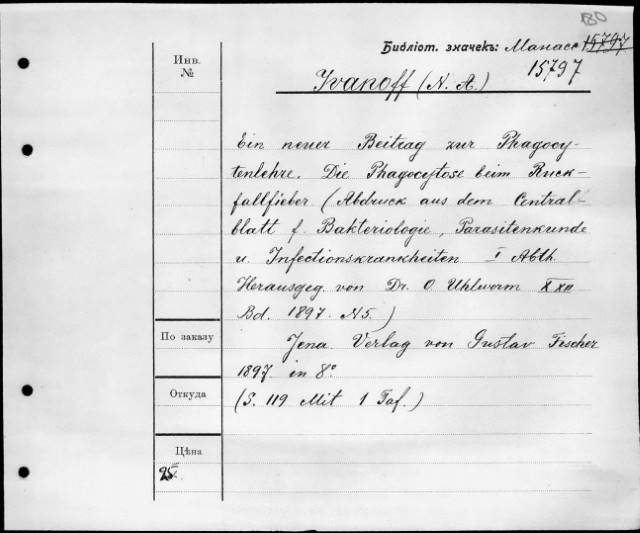 80
Библіот. значекъ: Манасс 15797
15797
Инв.
№
Ivanoff (N. A.)
Ein neuer Beitrag zur Phagocy-
tenlehre. Die Phagocytose beim Ruck-
fallfieber (Abdruck aus dem Central-
blatt f. Bakteriologie, Parasitenkunde
u. Infectionskrankheiten I Abth.
Herausgeg. von Dr. O Uhlworm XXII
Bd. 1897. N5.)
По заказу
Jena. Verlag von Gustav Fischer
1897. in 8º
Откуда
(S. 119 Mit 1 Taf.)
Цѣна
25